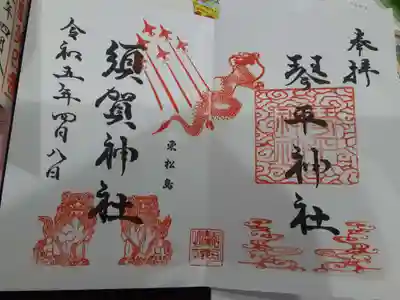 奉拝
琴平神社
東松島
須賀神社
令和五年四月八日